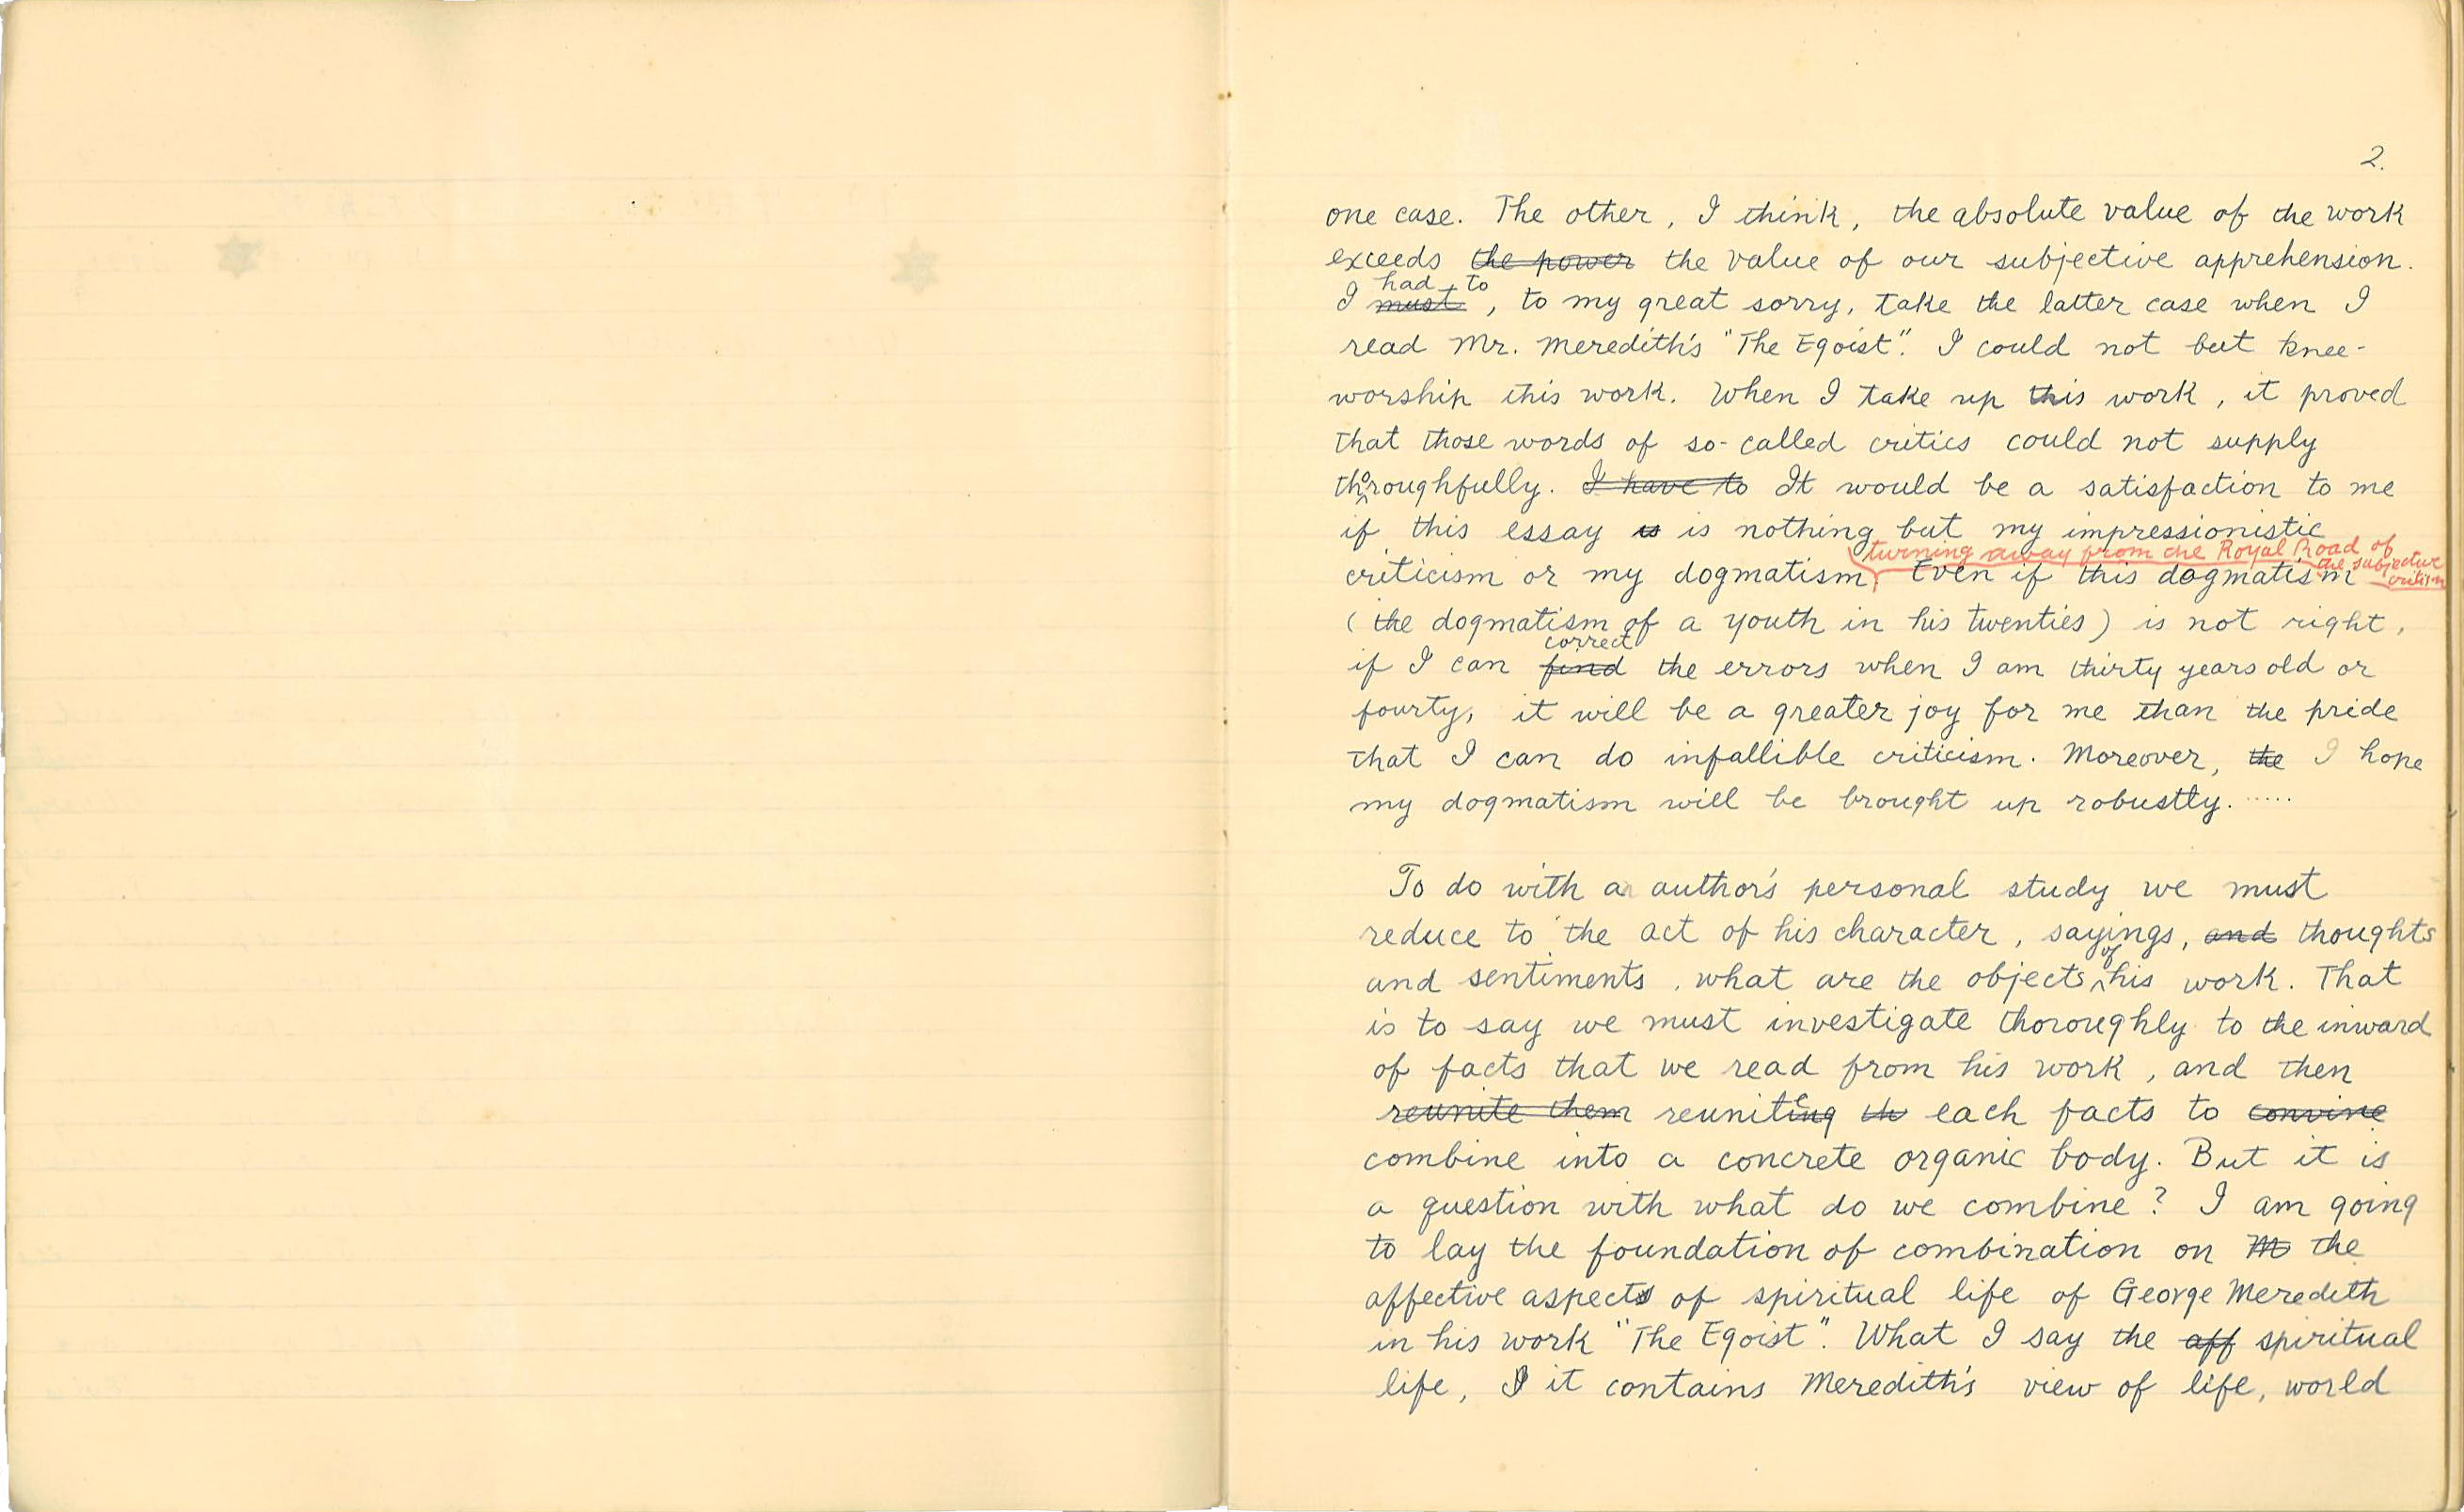 2.
one case. The other, I think, the absolute value of the work
exceeds the power the value of our subjective apprehension.
had to
I must, to my great sorry, take the latter case when I
read Mr. Meredith's "The Egoist". I could not but knee-
worship this work. When I take up this work, it proved
that those words of so-called critics could not supply
thoroughfully. I have to It would be a satisfaction to me
if this essay is is nothing but my impressionistic
turning away from the Royal Road of
the subjective
critism
criticism or my dogmatism, Even if this dogmatism
(the dogmatism of a youth in his twenties) is not right,
correct
if I can find the errors when I am thirty years old or
fourty, it will be a greater joy for me than the pride
that I can do infallible criticism. Moreover, the I hope
my dogmatism will be brought up robustly. .....
To do with an author's personal study we must
reduce to the act of his character, sayings, and thoughts
and sentiments, what are the objects of his work. That
is to say we must investigate thoroughly to the inward
of facts that we read from his work, and then
reunite them reuniteing th each facts to convine
combine into a concrete organic body. But it is
a question with what do we combine? I am going
to lay the foundation of combination on M the
affective aspects of spiritual life of George Meredith
in his work "The Egoist". What I say the aff spiritual
life, I it contains Meredith's view of life, world